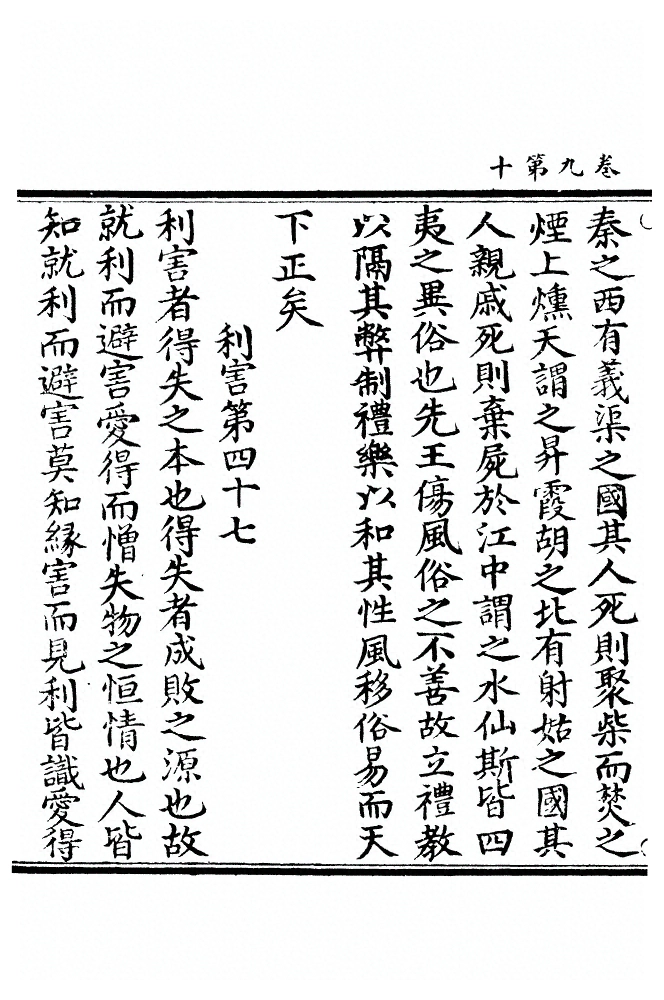 卷九第十
秦之西有義渠之國其人死則聚柴而焚之
煙上燻天謂之昇霞胡之北有射姑之國其
人親戚死則棄屍於江中謂之水仙斯皆四
夷之異俗也先王傷風俗之不善故立禮教
以隔其弊制禮樂以和其性風移俗易而天
下正矣
利害第四十七
利害者得失之本也得失者成敗之源也故
就利而避害愛得而憎失物之恒情也人皆
知就利而避害莫知緣害而見利皆識愛得